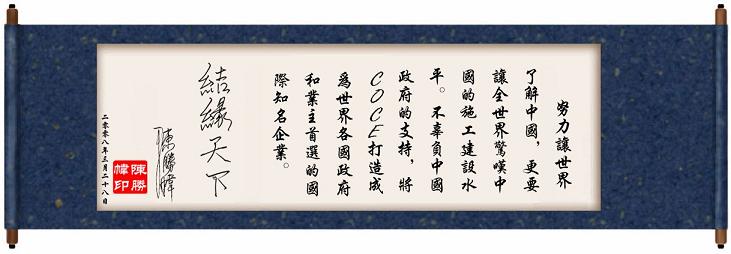 努力讓世界
了解中國，更要
讓全世界驚嘆中
國的施工建設水
平。不辜負中國
政府的支持，將
COCE打造成
為世界各國政府
和業主首選的國
際知名企業。
結緣天下
陳勝暐
二零零八年三月二十八日
陳勝
暐印